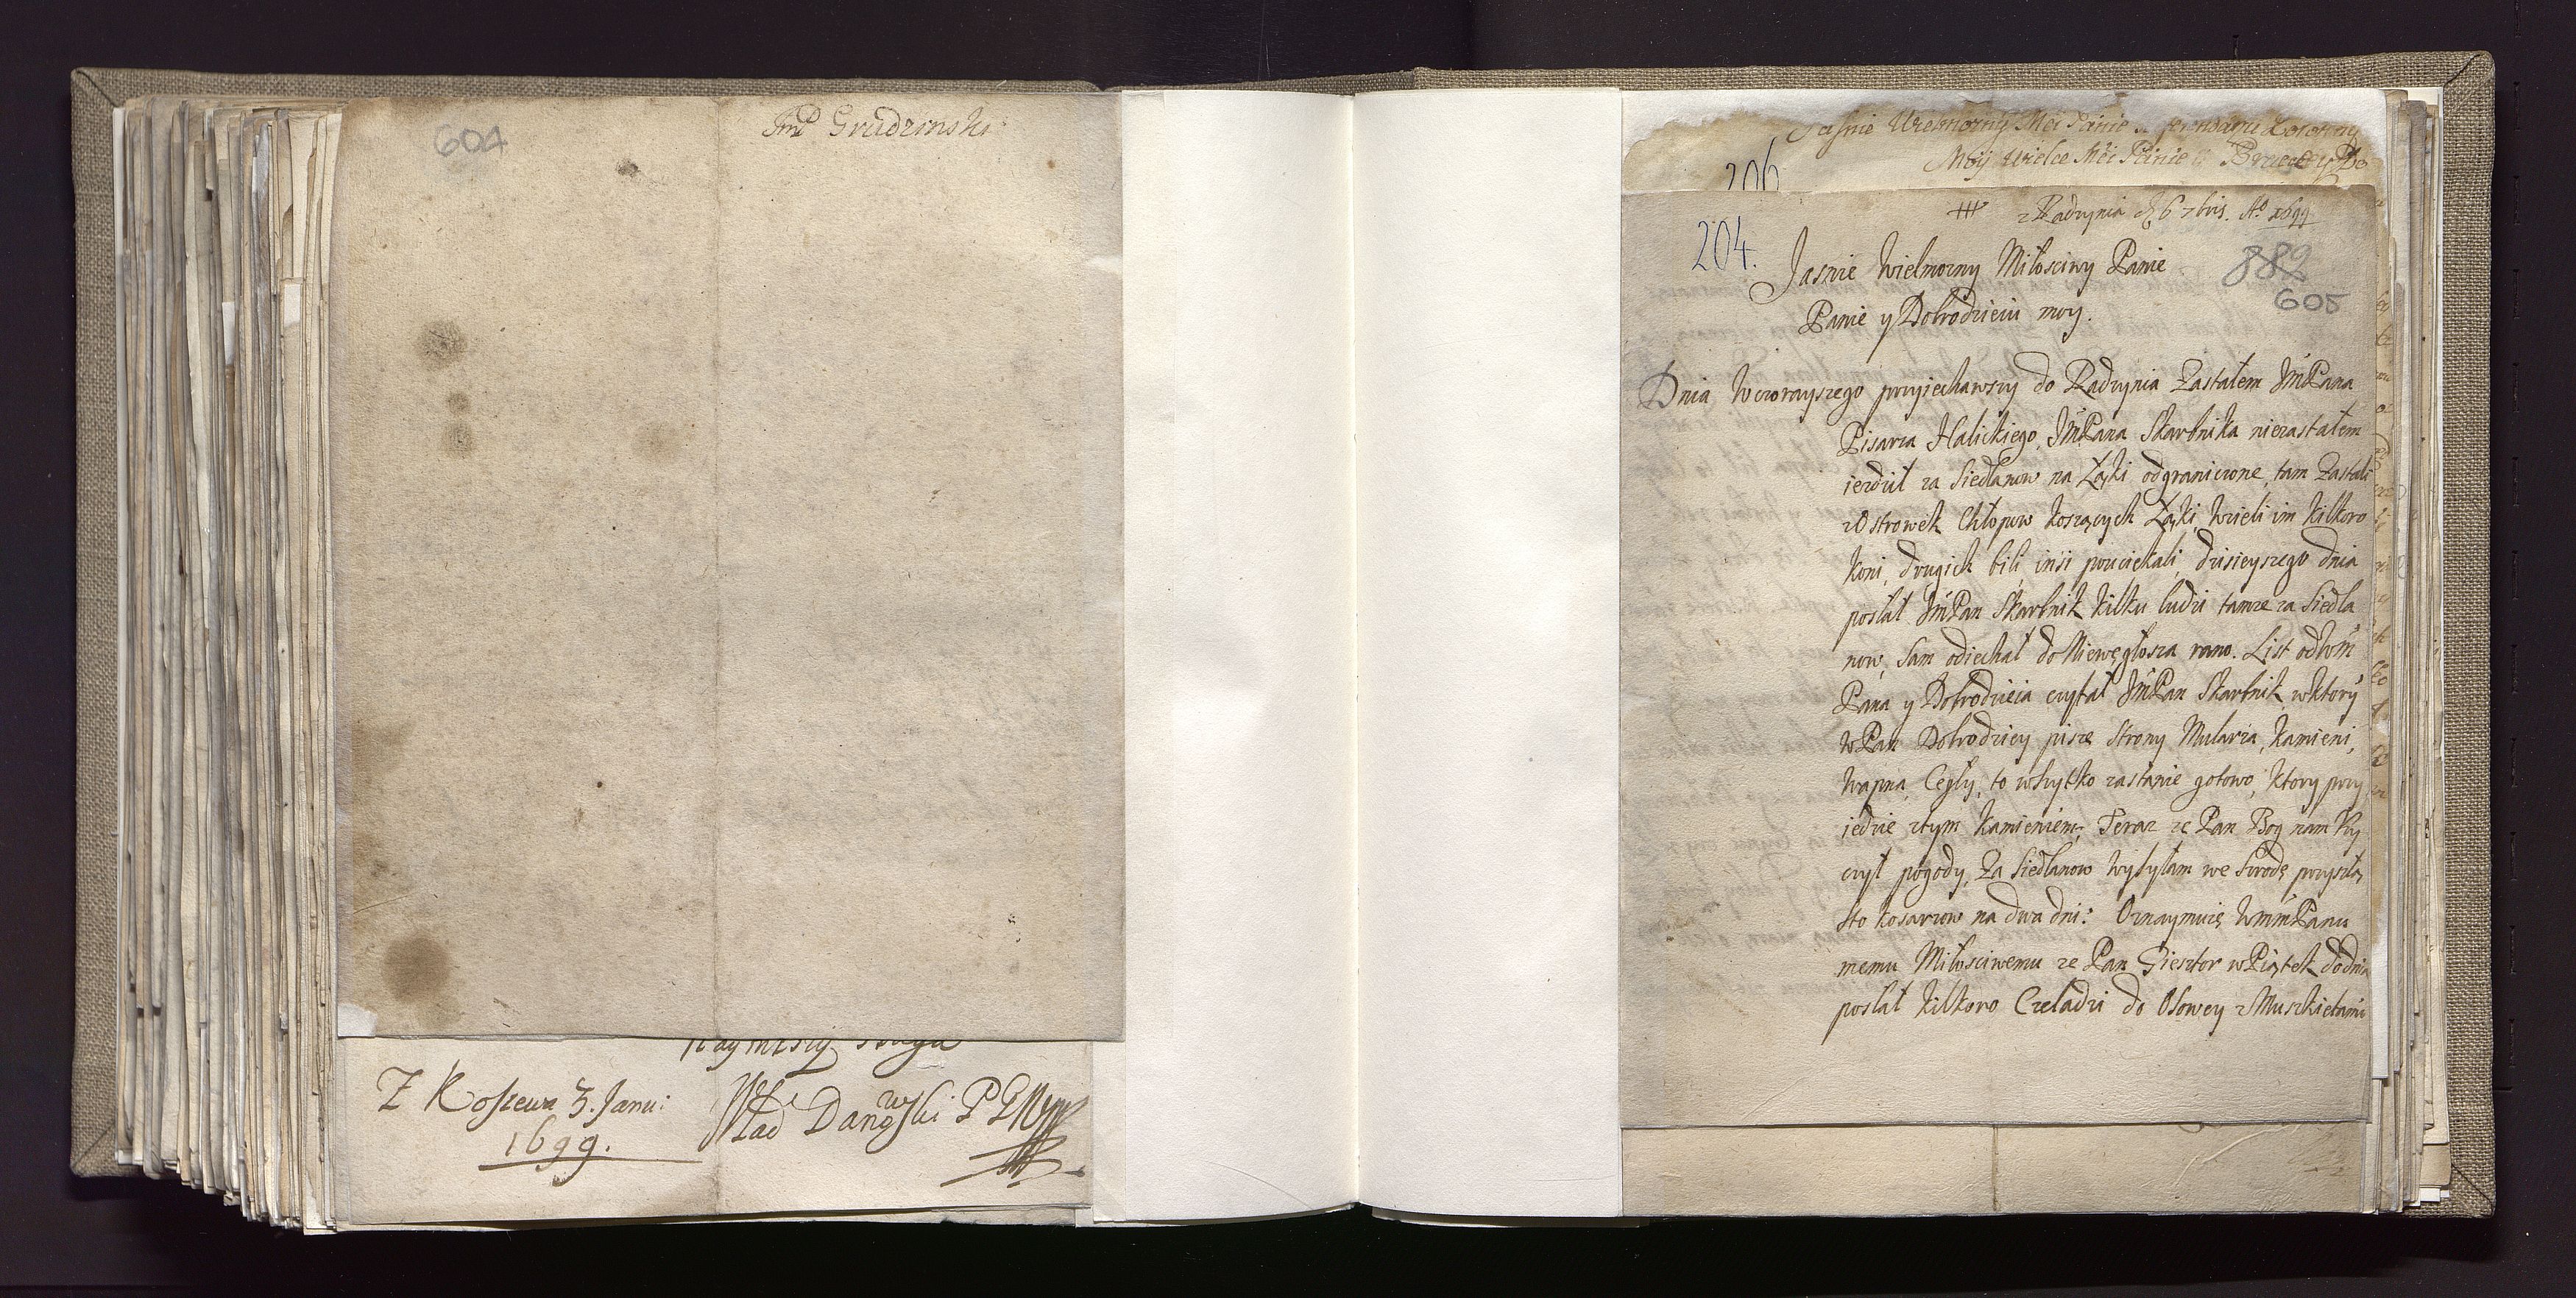 604
Jmp Grudzinski
Z Koszewa 3. Janu:
1699.
Wład Danowski
Jasnie Wielmozny Mei Panie
Moy Wielce Mei Panie y
206
z Radzynia d 6 7bris. Ao 1699
204.
889
605
Jasnie Wielmozny Miłosciwy Panie
Panie y Dobrodzieiu moy.
Dnia Wczorayszego przyiechawszy do Radzynia Zastałem JmPana
Pisarza Halickiego, JmPana Skarbnika niezastałem
iezdził za Siedlanow na Łąki odgraniczone, tam Zastali
z Ostrowek Chłopow koszących Łąki, Wzieli im kilkoro
koni, drugich bili, insi pouciekali, dzisieyszego dnia
posłał JmPan Skarbnik kilku ludzi tamze za Siedla
now, sam odiechał do Niewęgłosza rano. List od Wm
Pana y Dobrodzieia czytał JmPan Skarbnik, w ktory
WPan Dobrodziey pisze strony Mularza, kamieni,
Wapna, Cegły, to wszytko zastanie gotowo, ktory przy
iedzie z tym kamieniem; Teraz ze Pan Bog nam Zy
czył pogody, Za Siedlanow wysyłam we srzodę przyszłą
sto kosarzow na dwa dni: Oznaymuię WmmPanu
memu Miłosciwemu ze Pan Giesztor w Piątek dodnia
posłał kilkoro Czeladzi do Osowey z Muszkietami